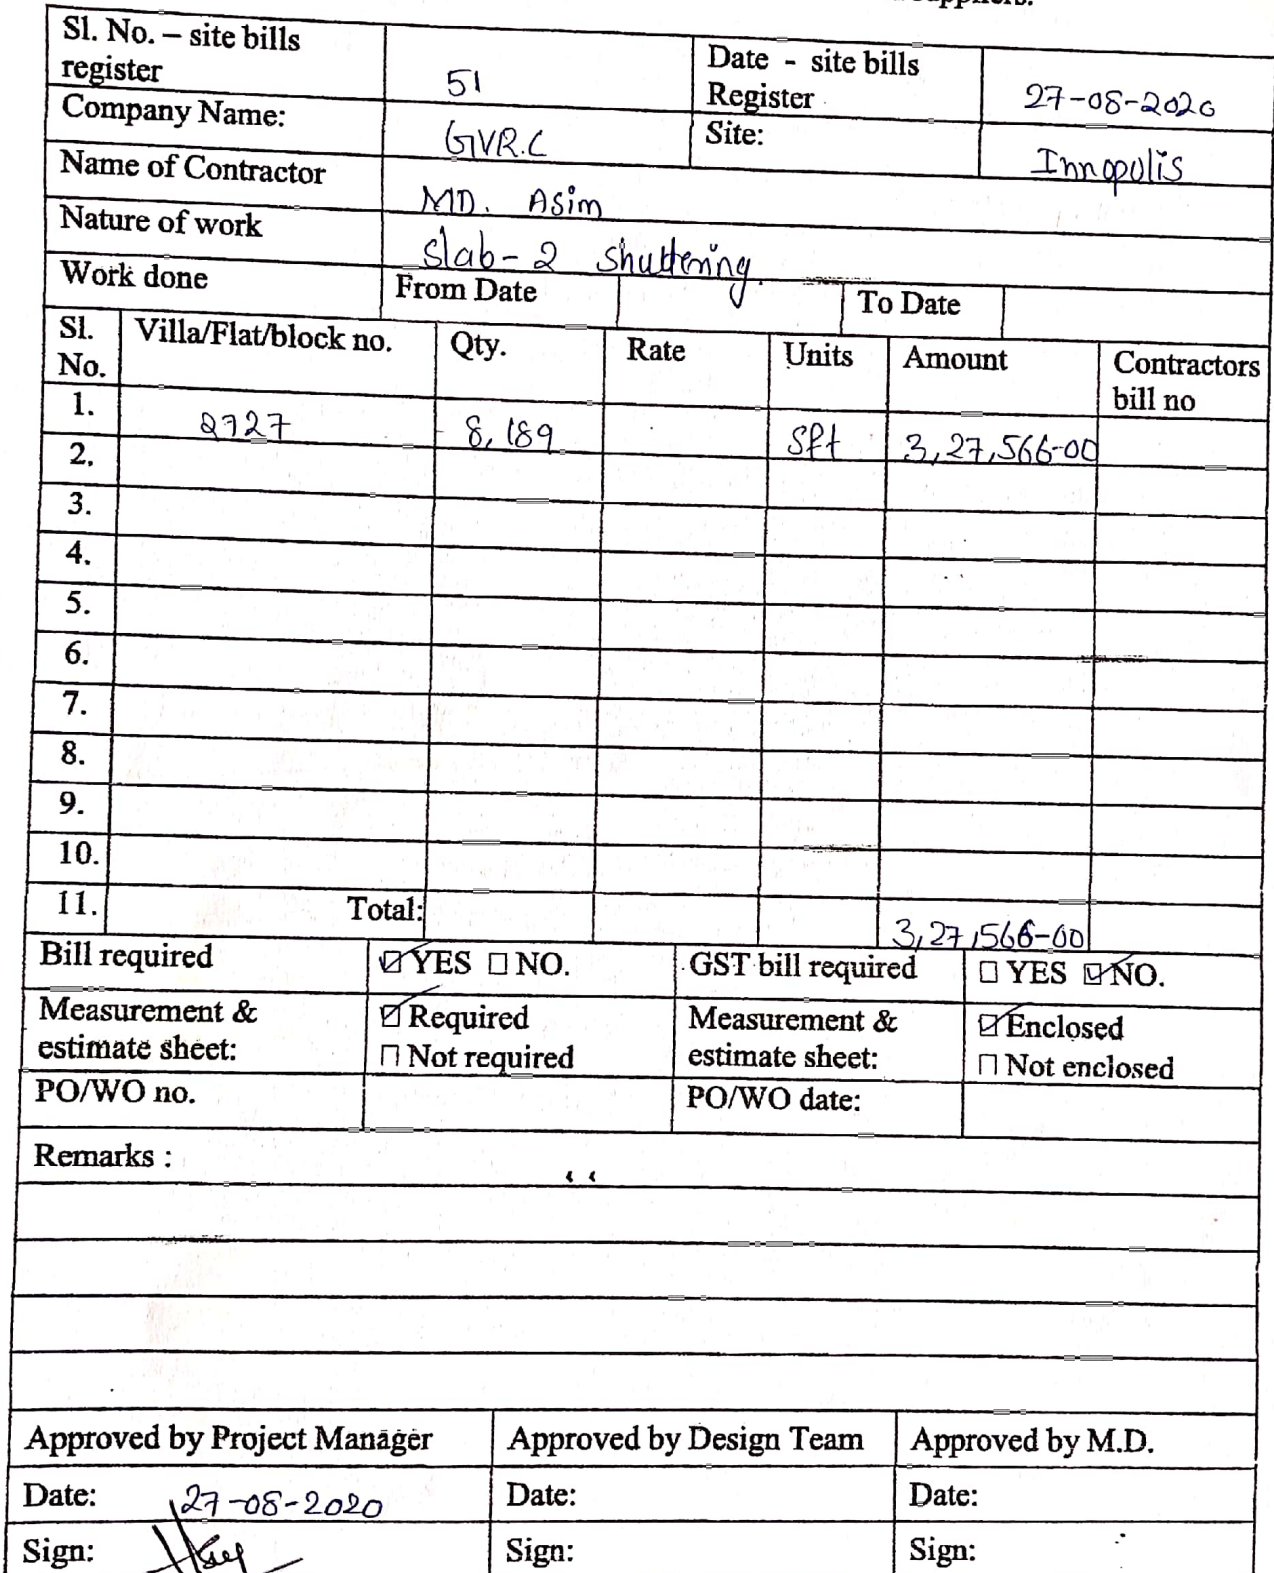 Sl. No. – site bills register 51 Date - site bills Register 27-08-2020
Company Name: GVR.C Site: Innopolis
Name of Contractor MD. Asim
Nature of work Slab-2 shuttering
Work done From Date To Date
Sl. No. Villa/Flat/block no. Qty. Rate Units Amount Contractors bill no
1. 2727 8,189 Sft 3,27,566-00
2.
3.
4.
5.
6.
7.
8.
9.
10.
11. Total: 3,27,566-00
Bill required ☑ YES ☐ NO. GST bill required ☐ YES ☑ NO.
Measurement & estimate sheet: ☑ Required ☐ Not required Measurement & estimate sheet: ☑ Enclosed ☐ Not enclosed
PO/WO no. PO/WO date:
Remarks :
Approved by Project Manager Approved by Design Team Approved by M.D.
Date: 27-08-2020 Date: Date:
Sign: Sign: Sign: